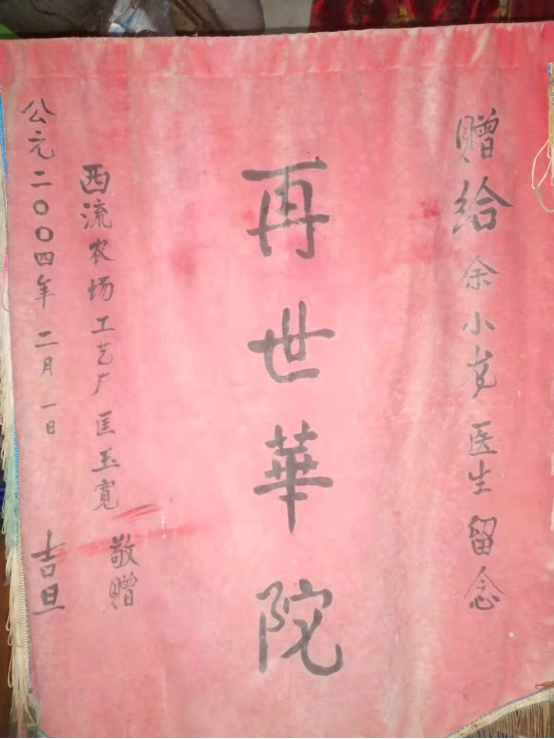 赠给余小党医生留念
再世華陀
西流农场工艺厂匡玉宽 敬赠
公元二〇〇四年二月一日 吉旦